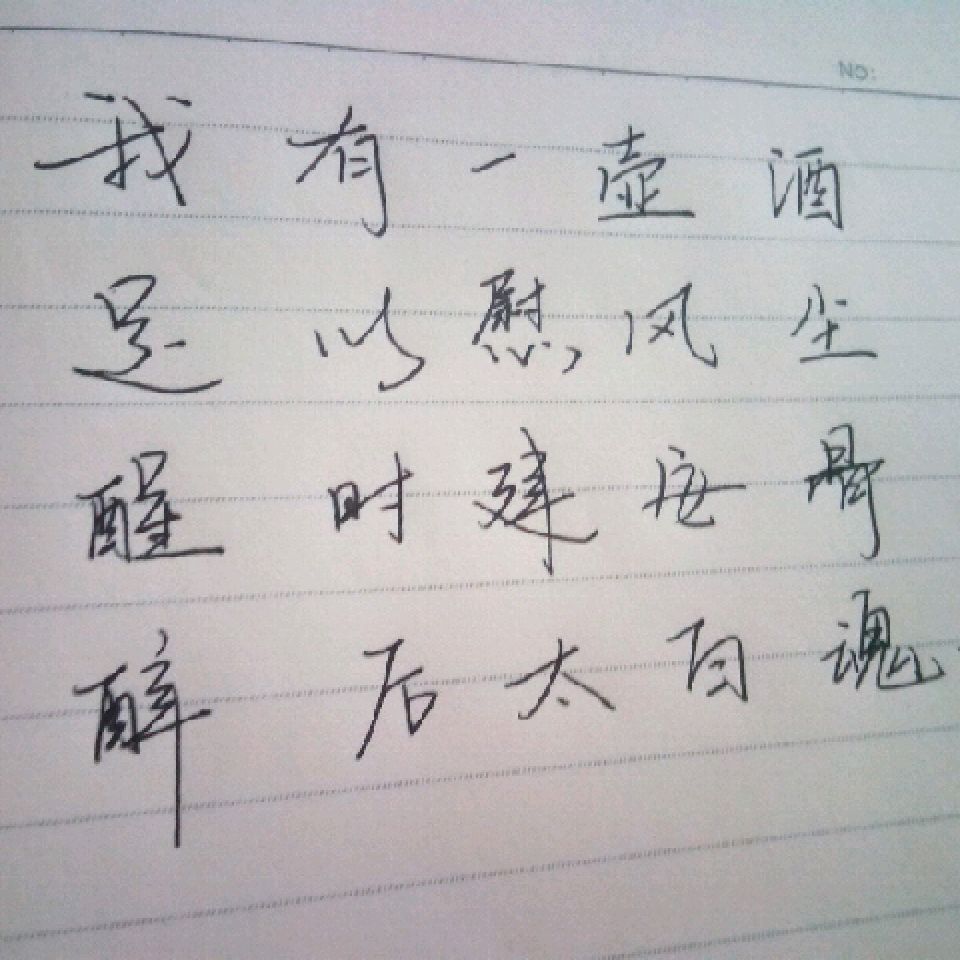 NO:
我有一壶酒
足以慰风尘
醒时建安骨
醉后太白魂